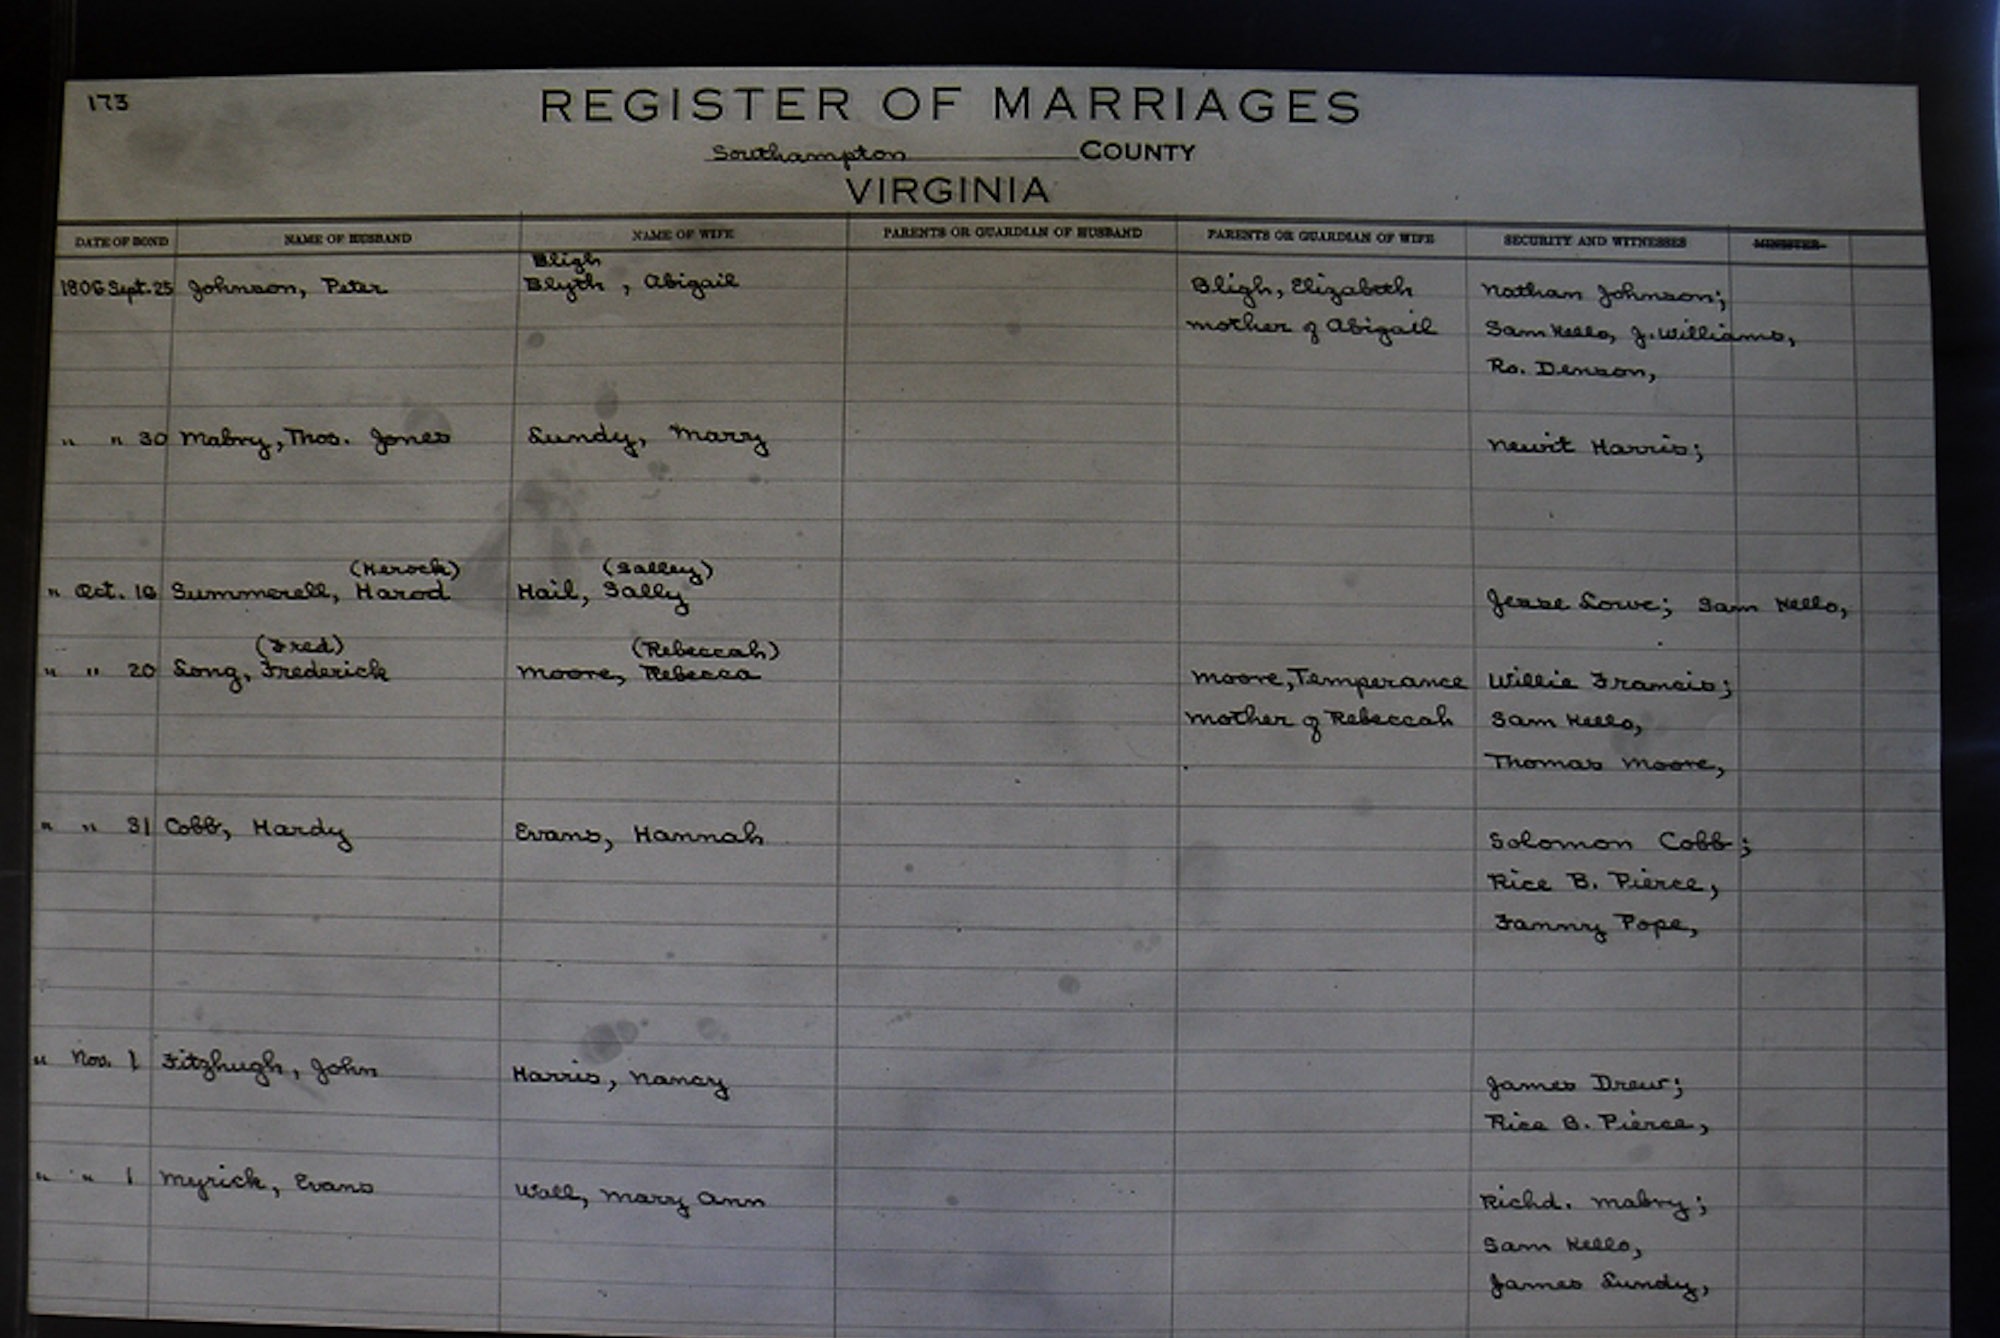 173
REGISTER OF MARRIAGES
Southampton COUNTY
VIRGINIA
DATE OF BOND NAME OF HUSBAND NAME OF WIFE PARENTS OR GUARDIAN OF HUSBAND PARENTS OR GUARDIAN OF WIFE SECURITY AND WITNESSES MINISTER
Bligh
1806 Sept. 25 Johnson, Peter Blyth, Abigail Bligh, Elizabeth Nathan Johnson;
mother of Abigail Sam Kello, J. Williams,
Ro. Denson,
" " 30 Mabry, Thos. Jones Lundy, Marry Newit Harris;
(Herock) (Salley)
" Oct. 16 Summerell, Harod Hail, Sally Jesse Lowe; Sam Kello,
(Fred) (Rebeccah)
" " 20 Long, Frederick Moore, Rebecca Moore, Temperance Willie Francis;
mother of Rebeccah Sam Kello,
Thomas Moore,
" " 31 Cobb, Hardy Evans, Hannah Solomon Cobb;
Rice B. Pierce,
Fanny Pope,
" Nov. 1 Fitzhugh, John Harris, Nancy James Drew;
Rice B. Pierce,
" " 1 Myrick, Evans Wall, Mary Ann Richd. Mabry;
Sam Kello,
James Lundy,